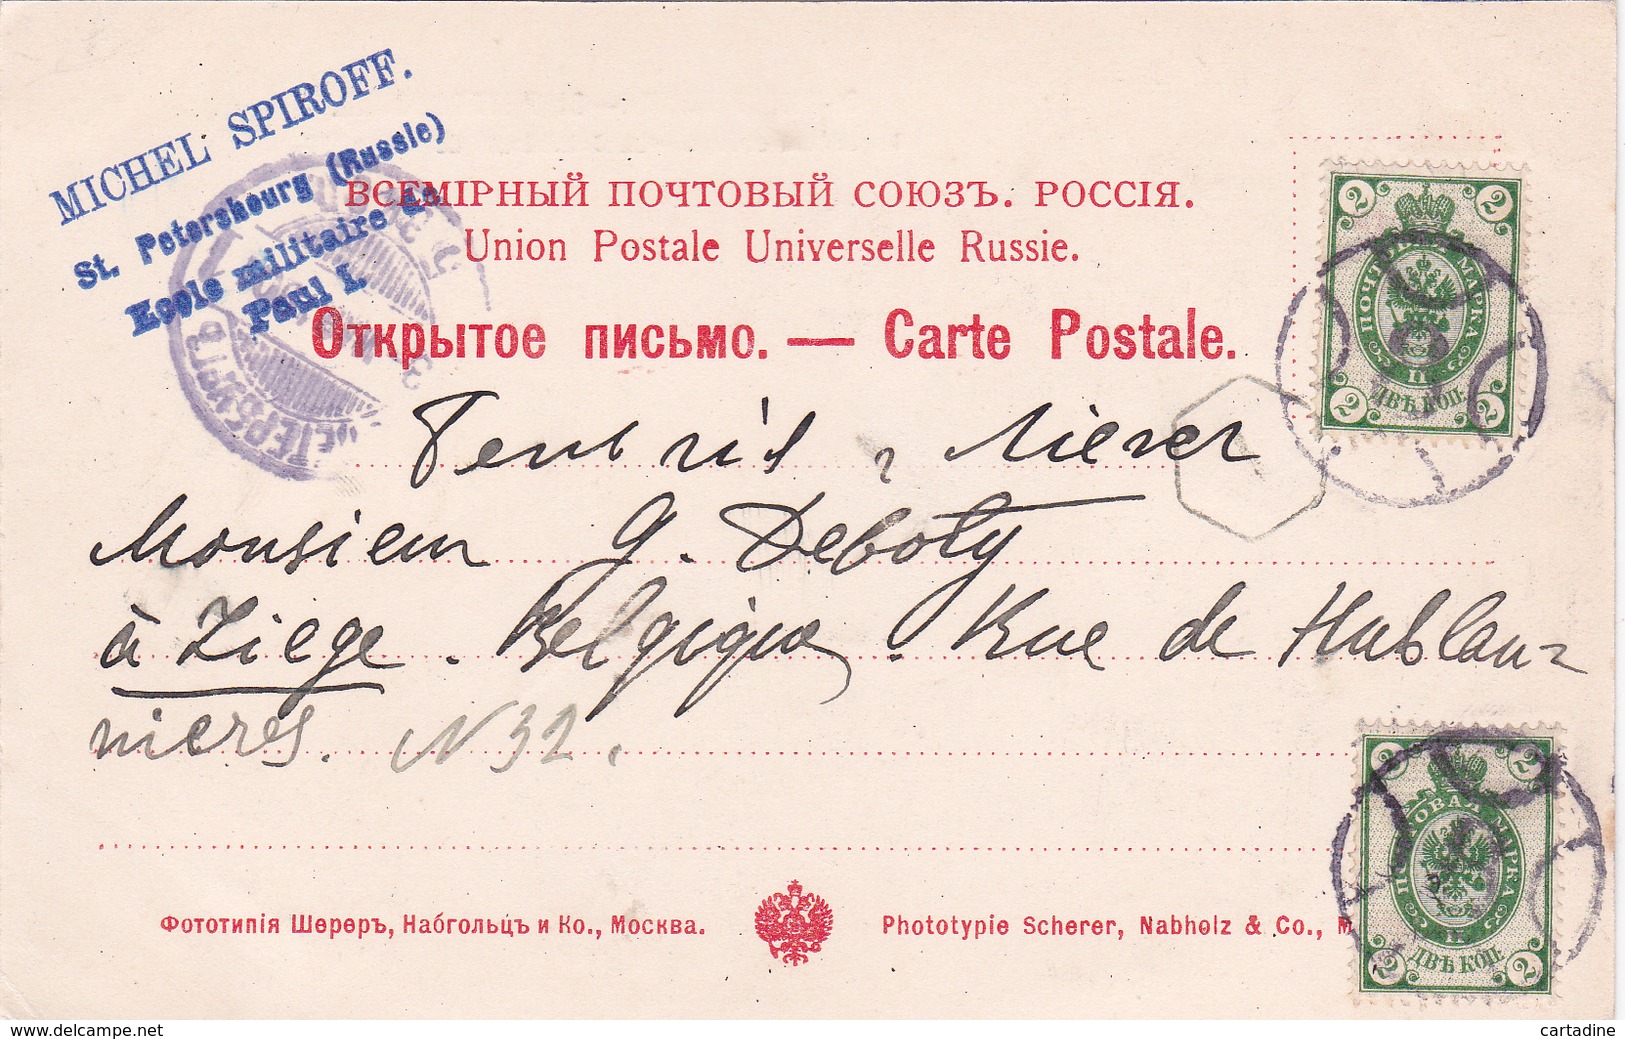 MICHEL SPIROFF.
St. Petersbourg (Russie)
Ecole militaire de
Paul I.
ВСЕМІРНЫЙ ПОЧТОВЫЙ СОЮЗЪ. РОССІЯ.
Union Postale Universelle Russie.
Открытое письмо. — Carte Postale.
Monsieur G. Deboty
à Liège. Belgique. Rue de Hublau-
nières. N 32.
2 2
ПОЧТОВАЯ МАРКА
2 ДВѢ КОП. 2
2 2
ПОЧТОВАЯ МАРКА
2 ДВѢ КОП. 2
Фототипія Шереръ, Набгольцъ и Ко., Москва.
Phototypie Scherer, Nabholz & Co., M
www.delcampe.net
cartadine